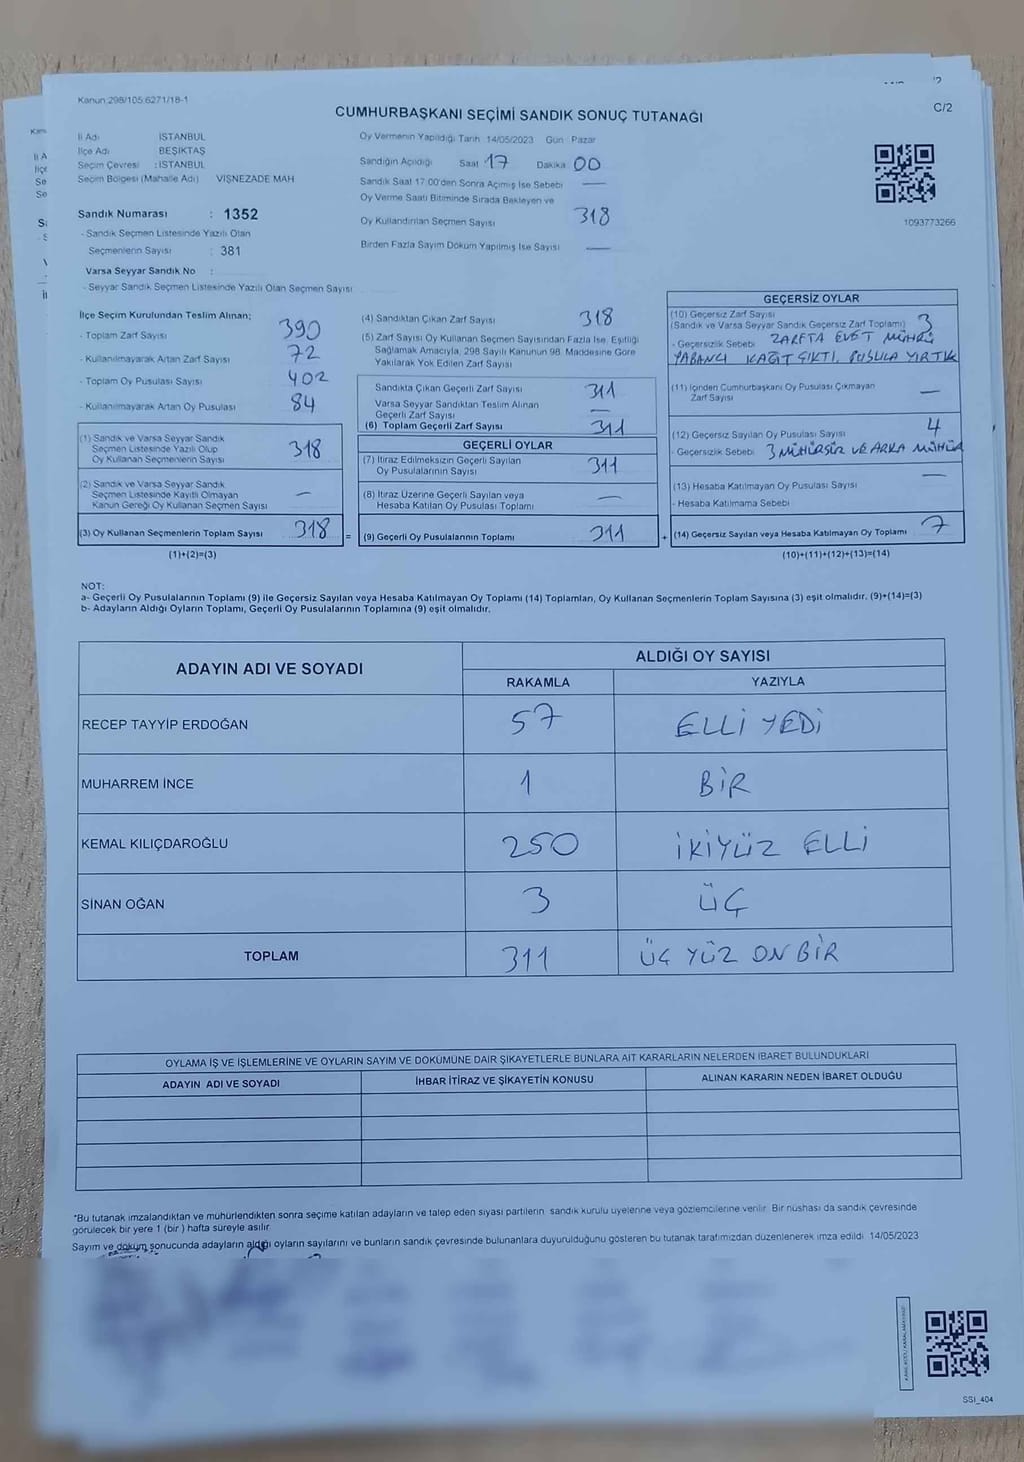 Kanun:298/105.6271/18-1
C/2
CUMHURBAŞKANI SEÇİMİ SANDIK SONUÇ TUTANAĞI
İl Adı : İSTANBUL
İlçe Adı : BEŞİKTAŞ
Seçim Çevresi : İSTANBUL
Seçim Bölgesi (Mahalle Adı) VİŞNEZADE MAH
Oy Vermenin Yapıldığı Tarih 14/05/2023 Gün : Pazar
Sandığın Açıldığı Saat 17 Dakika 00
Sandık Saat 17.00'den Sonra Açımış İse Sebebi —
Oy Verme Saati Bitiminde Sırada Bekleyen ve
Oy Kullandırılan Seçmen Sayısı 318
Birden Fazla Sayım Döküm Yapılmış İse Sayısı —
1093773266
Sandık Numarası : 1352
- Sandık Seçmen Listesinde Yazılı Olan
Seçmenlerin Sayısı : 381
Varsa Seyyar Sandık No :
- Seyyar Sandık Seçmen Listesinde Yazılı Olan Seçmen Sayısı
İlçe Seçim Kurulundan Teslim Alınan;
- Toplam Zarf Sayısı 390
- Kullanılmayarak Artan Zarf Sayısı 72
- Toplam Oy Pusulası Sayısı 402
- Kullanılmayarak Artan Oy Pusulası 84
(1) Sandık ve Varsa Seyyar Sandık
Seçmen Listesinde Yazılı Olup
Oy Kullanan Seçmenlerin Sayısı 318
(2) Sandık ve Varsa Seyyar Sandık
Seçmen Listesinde Kayıtlı Olmayan
Kanun Gereği Oy Kullanan Seçmen Sayısı —
(3) Oy Kullanan Seçmenlerin Toplam Sayısı 318 =
(1)+(2)=(3)
(4) Sandıktan Çıkan Zarf Sayısı 318
(5) Zarf Sayısı Oy Kullanan Seçmen Sayısından Fazla İse, Eşitliği
Sağlamak Amacıyla, 298 Sayılı Kanunun 98. Maddesine Göre
Yakılarak Yok Edilen Zarf Sayısı
Sandıkta Çıkan Geçerli Zarf Sayısı 311
Varsa Seyyar Sandıktan Teslim Alınan
Geçerli Zarf Sayısı —
(6) Toplam Geçerli Zarf Sayısı 311
GEÇERLİ OYLAR
(7) İtiraz Edilmeksizin Geçerli Sayılan
Oy Pusulalarının Sayısı 311
(8) İtiraz Üzerine Geçerli Sayılan veya
Hesaba Katılan Oy Pusulası Toplamı —
(9) Geçerli Oy Pusulalarının Toplamı 311 +
GEÇERSİZ OYLAR
(10) Geçersiz Zarf Sayısı
(Sandık ve Varsa Seyyar Sandık Geçersiz Zarf Toplamı) 3
- Geçersizlik Sebebi ZARFTA EVET MÜHRÜ
YABANCI KAĞIT ÇIKTI, PUSULA YIRTIK
(11) İçinden Cumhurbaşkanı Oy Pusulası Çıkmayan
Zarf Sayısı —
(12) Geçersiz Sayılan Oy Pusulası Sayısı 4
- Geçersizlik Sebebi 3 MÜHÜRSÜZ VE ARKA MÜHÜR
(13) Hesaba Katılmayan Oy Pusulası Sayısı —
- Hesaba Katılmama Sebebi
(14) Geçersiz Sayılan veya Hesaba Katılmayan Oy Toplamı 7
(10)+(11)+(12)+(13)=(14)
NOT:
a- Geçerli Oy Pusulalarının Toplamı (9) ile Geçersiz Sayılan veya Hesaba Katılmayan Oy Toplamı (14) Toplamları, Oy Kullanan Seçmenlerin Toplam Sayısına (3) eşit olmalıdır. (9)+(14)=(3)
b- Adayların Aldığı Oyların Toplamı, Geçerli Oy Pusulalarının Toplamına (9) eşit olmalıdır.
ADAYIN ADI VE SOYADI ALDIĞI OY SAYISI
RAKAMLA YAZIYLA
RECEP TAYYİP ERDOĞAN 57 ELLİ YEDİ
MUHARREM İNCE 1 BİR
KEMAL KILIÇDAROĞLU 250 İKİYÜZ ELLİ
SİNAN OĞAN 3 ÜÇ
TOPLAM 311 ÜÇ YÜZ ON BİR
OYLAMA İŞ VE İŞLEMLERİNE VE OYLARIN SAYIM VE DÖKÜMÜNE DAİR ŞİKAYETLERLE BUNLARA AİT KARARLARIN NELERDEN İBARET BULUNDUKLARI
ADAYIN ADI VE SOYADI İHBAR İTİRAZ VE ŞİKAYETİN KONUSU ALINAN KARARIN NEDEN İBARET OLDUĞU
*Bu tutanak imzalandıktan ve mühürlendikten sonra seçime katılan adayların ve talep eden siyasi partilerin sandık kurulu üyelerine veya gözlemcilerine verilir. Bir nüshası da sandık çevresinde
görülecek bir yere 1 (bir) hafta süreyle asılır.
Sayım ve döküm sonucunda adayların aldığı oyların sayılarını ve bunların sandık çevresinde bulunanlara duyurulduğunu gösteren bu tutanak tarafımızdan düzenlenerek imza edildi. 14/05/2023
SSİ_404